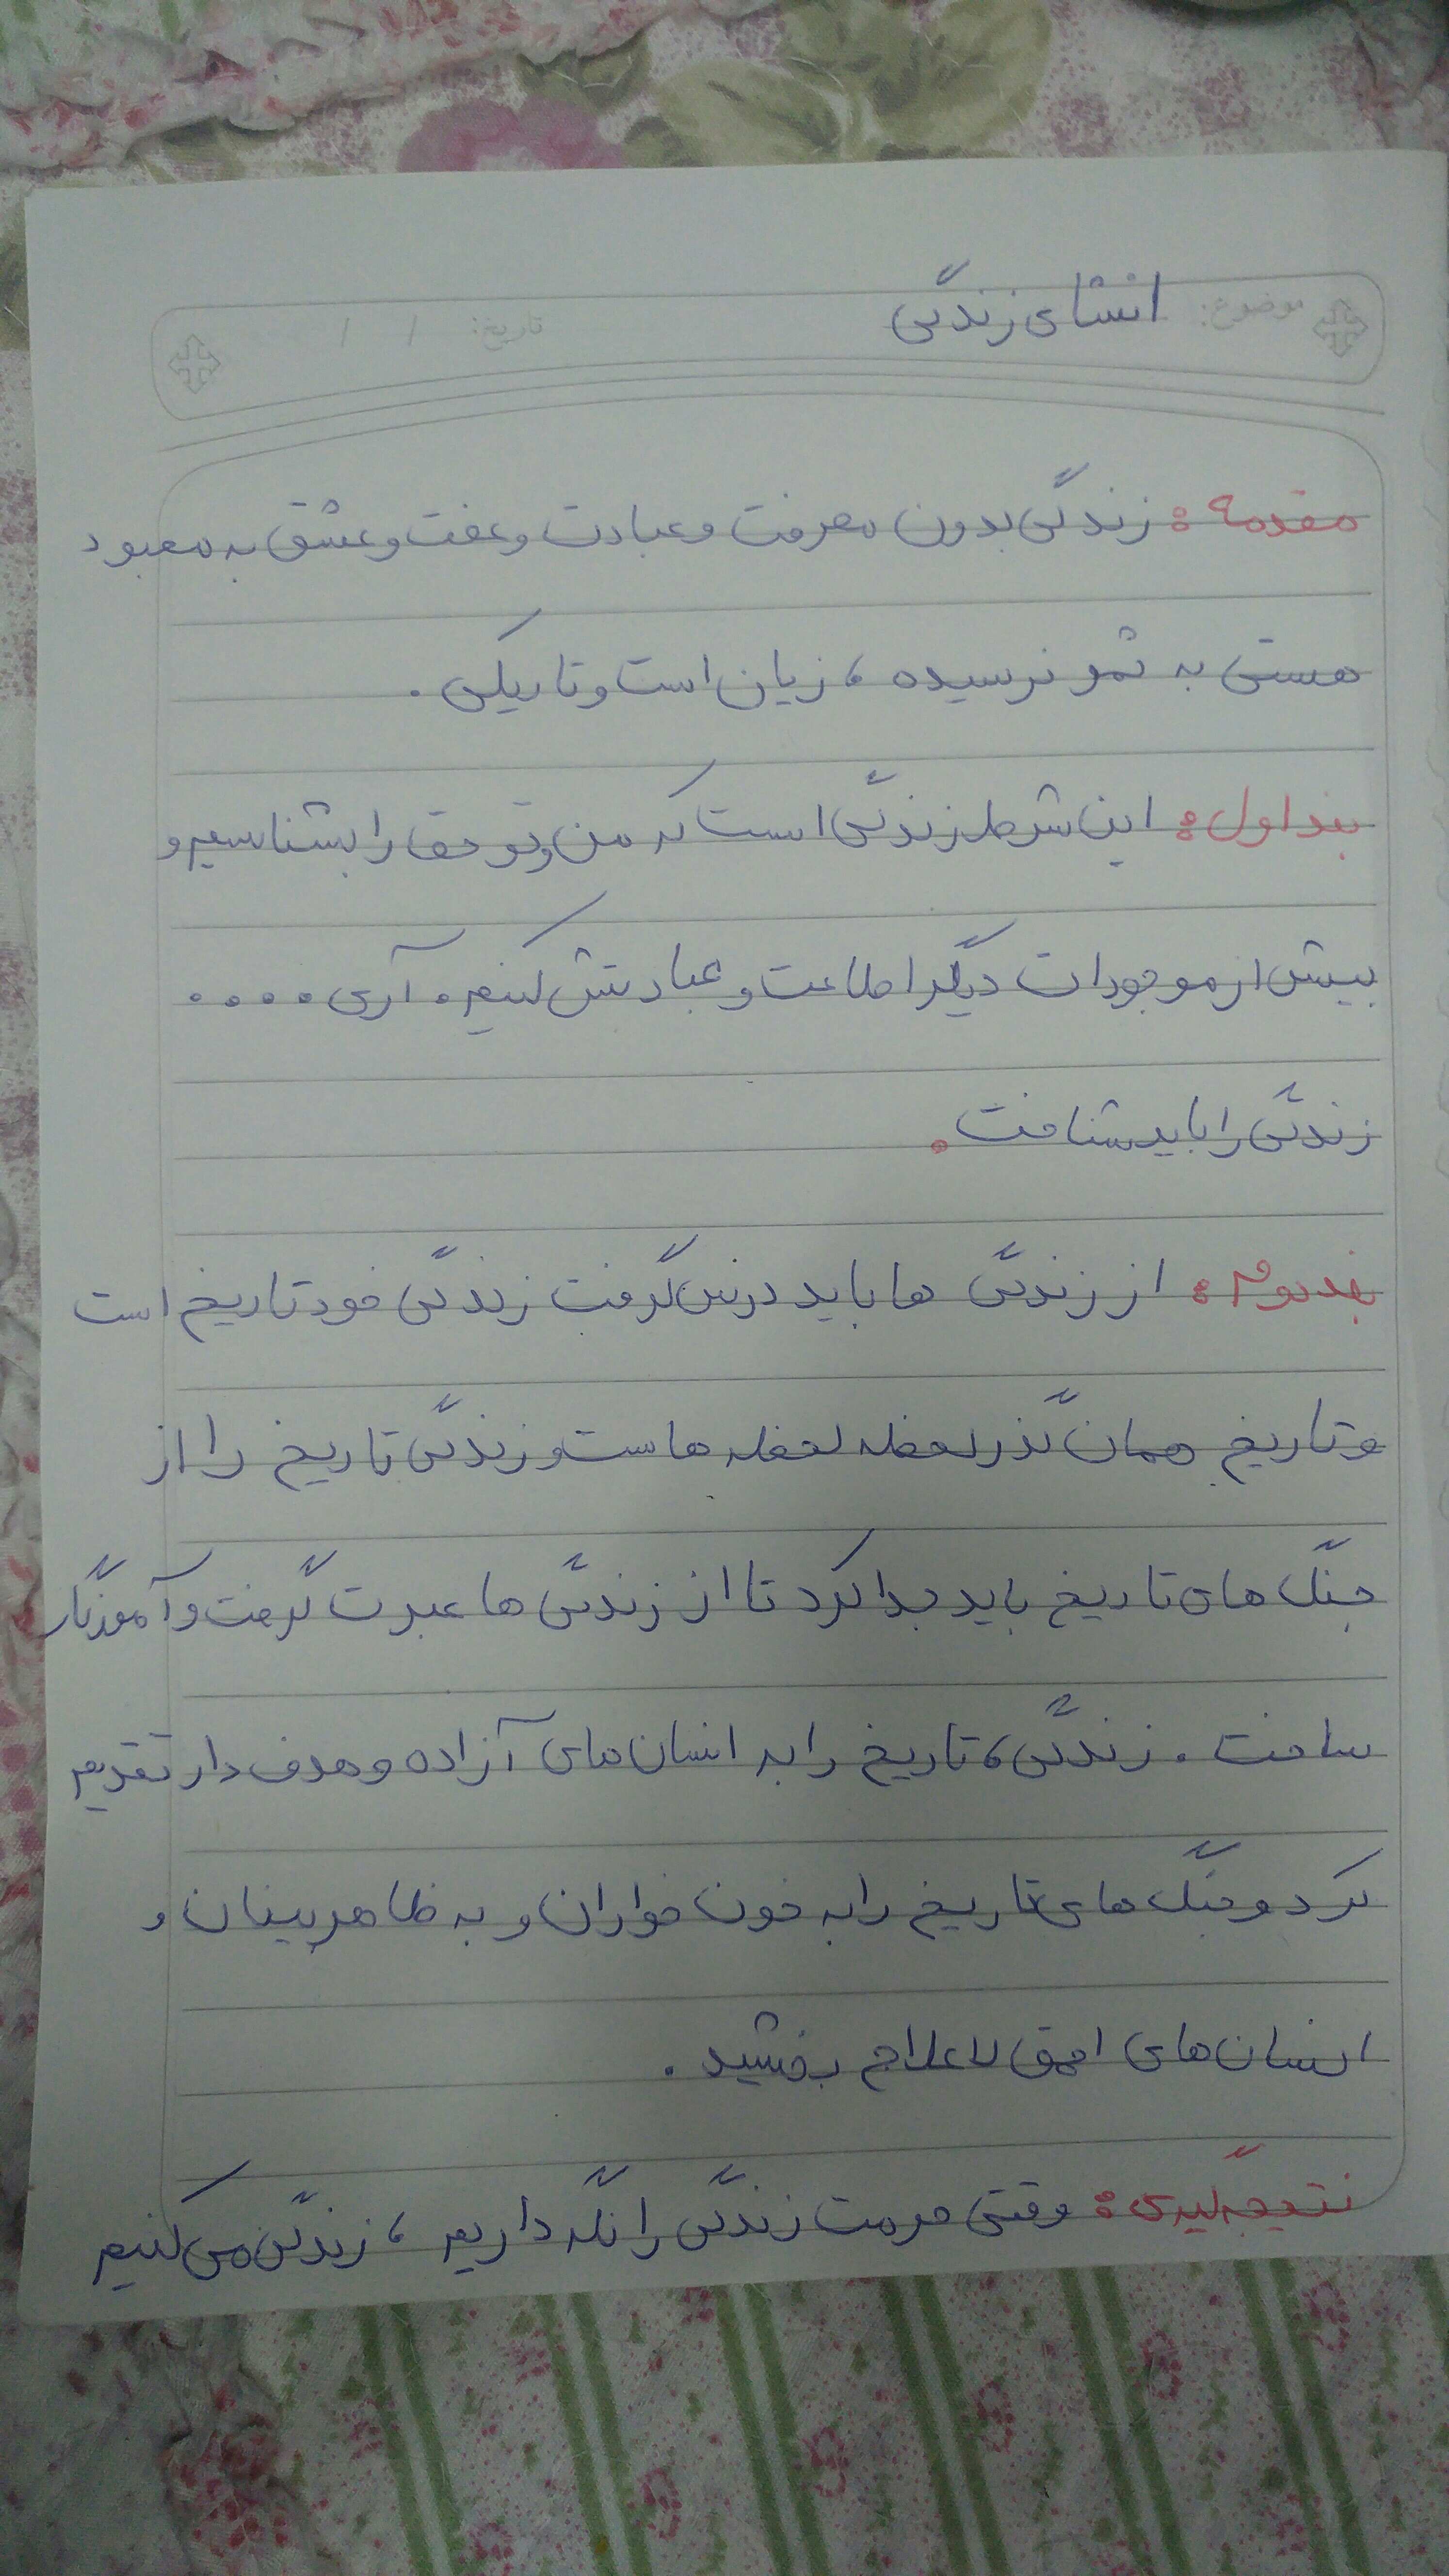 موضوع: انشای زندگی
تاریخ: / /
مقدمه: زندگی بدون معرفت و عبادت و عفت و عشق به معبود
هستی به ثمر نرسیده، زیان است و تاریکی.
بند اول: این شرط زندگی است که من و تو حق را بشناسیم و
بیش از موجودات دیگر اطاعت و عبادتش کنیم. آری ....
زندگی را باید شناخت.
بند دوم: از زندگی ها باید درس گرفت زندگی خود تاریخ است
و تاریخ همان گذر لحظه لحظه هاست و زندگی تاریخ را از
جنگ های تاریخ باید جدا کرد تا از زندگی ها عبرت گرفت و آموزگار
ساخت. زندگی، تاریخ را به انسان های آزاده و هدف دار تقدیم
کرد و جنگ های تاریخ را به خون خواران و به ظاهر بینان و
انسان های احمق لاعلاج بخشید.
نتیجه گیری: وقتی حرمت زندگی را نگه داریم، زندگی می کنیم